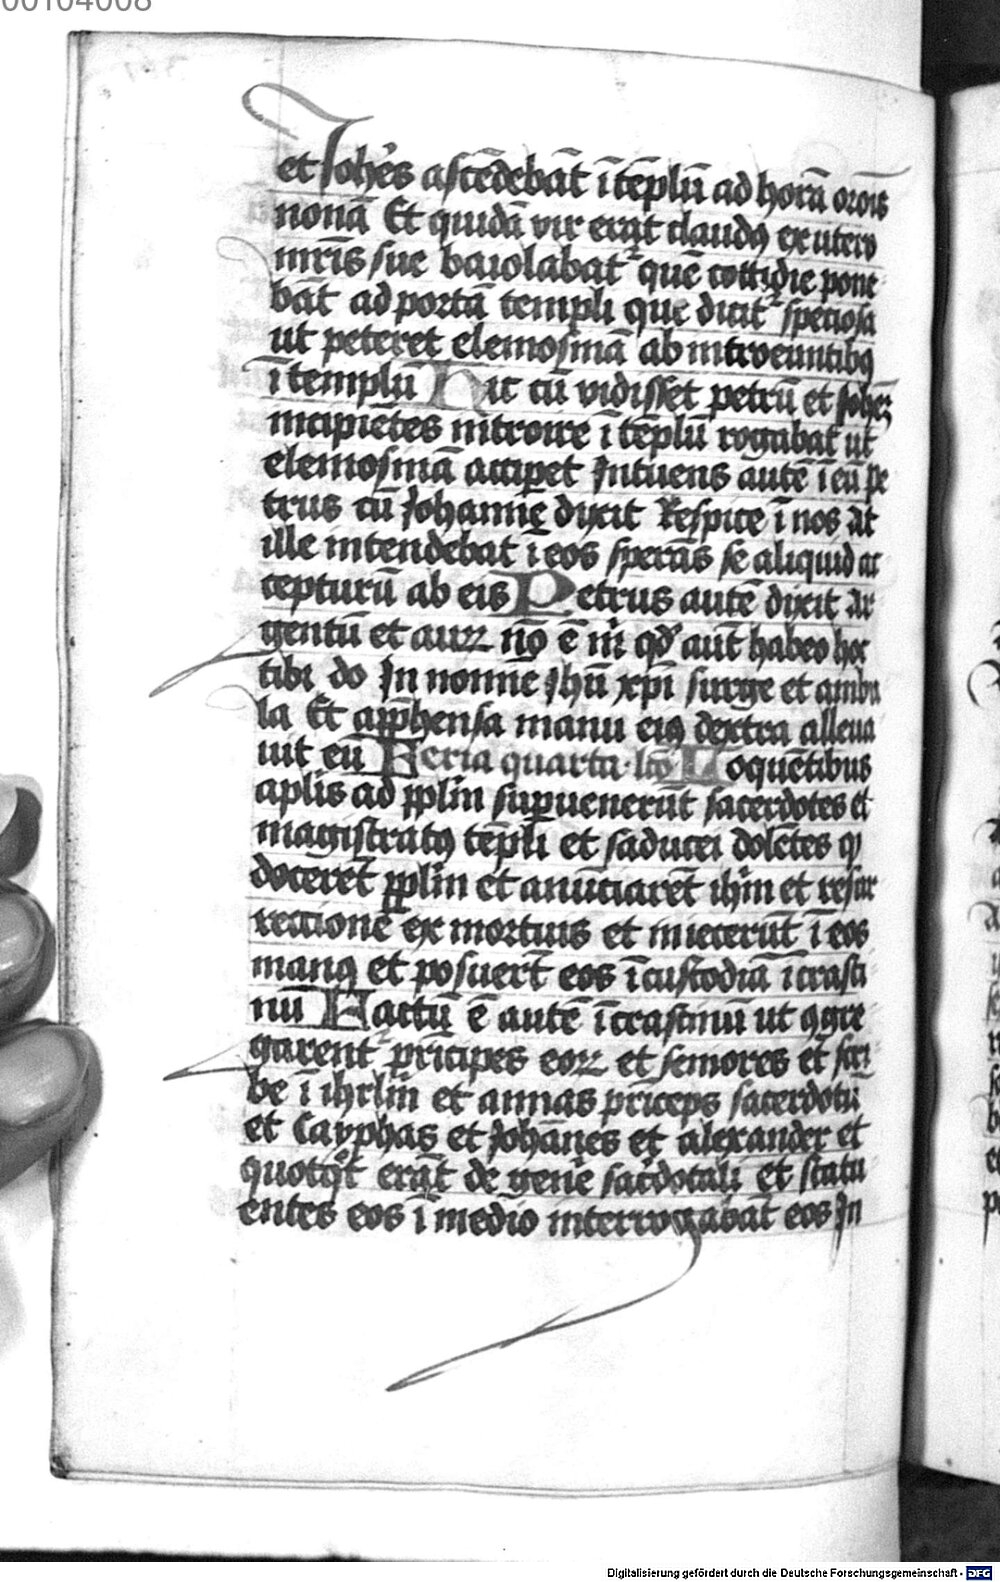 00104008
et Johēs ascēdebāt ī tēplū ad horā orōis
nonā Et quidā vir erat claudꝰ ex utero
mr̄is sue baiolabat᷑ quē cottidie pone
bāt ad portā templi que dicit᷑ speciosa
ut peteret elemosinā ab introeuntibꝰ
ī templū Hic cū vidisset petrū et Johēꝫ
incipiētes introire ī tēplū rogabat ut
elemosinā acciꝑet Intuens autē ī eū pe
trus cū Johanne dixit Respice ī nos At
ille intendebat ī eos sperās se aliquid ac
cepturū ab eis Petrus autē dixit Ar
gentū et auꝝ nō ē m̄ qđ aut̄ habeo hoc
tibi do In nomīe Jhū xp̄i surge et ambu
la Et app̄hensa manu eiꝰ dextra alleua
uit eū Feria quarta lc̄o Loquētibus
aplis ad pplm̄ suꝑuenerūt sacerdotes et
magistratꝰ tēpli et saducei dolētes qꝭ
docerēt pplm̄ et anūciarēt ihm̄ et resur
rectionē ex mortuis et iniecerūt ī eos
manꝰ et posuert̄ eos ī custodiā ī crasti
nū Factū ē autē ī crastinū ut ꝯgre
garent᷑ pⁱncipes eoꝝ et seniores et scri
be ī ihrlm̄ et annas pⁱnceps sacerdotū
et Cayphas et Johānes et alexander et
quotqͦt erāt de genē sac̄dotali et statu
entes eos ī medio interrogabāt eos In
Digitalisierung gefördert durch die Deutsche Forschungsgemeinschaft - DFG